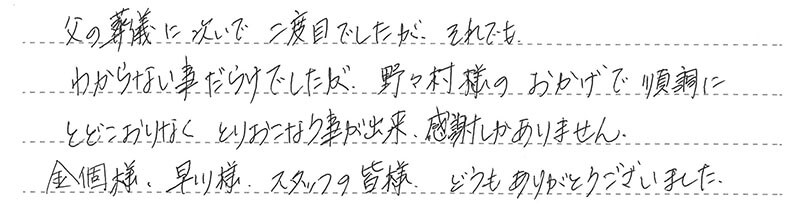 父の葬儀に次いで 二度目でしたが、それでも、
わからない事だらけでしたが、野々村様の おかげで 順調に
とどこおりなく とりおこなう事が出来、感謝しかありません。
金個様、早川様、スタッフの皆様、どうもありがとうございました。